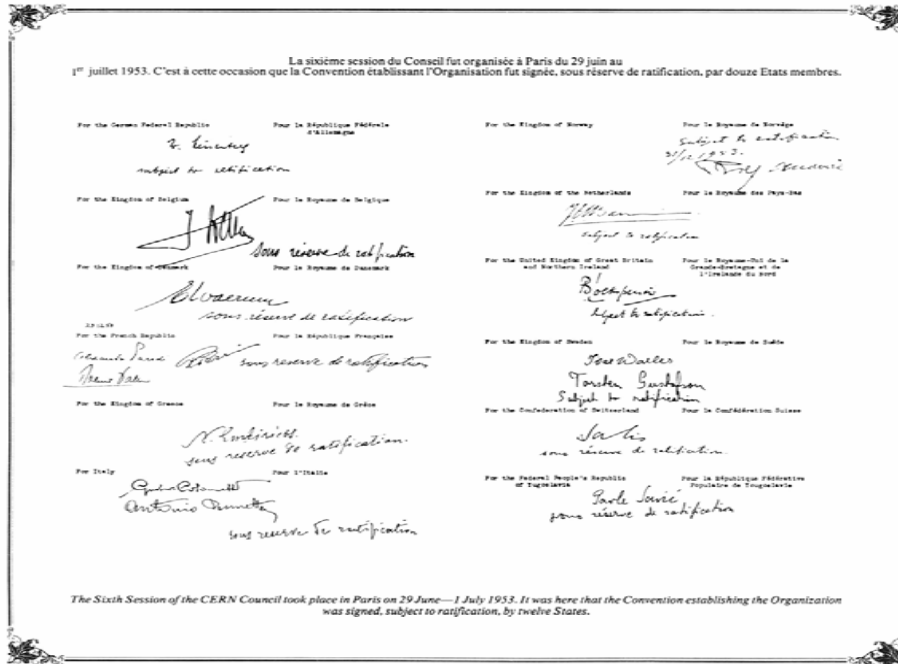 La sixième session du Conseil fut organisée à Paris du 29 juin au
1er juillet 1953. C'est à cette occasion que la Convention établissant l'Organisation fut signée, sous réserve de ratification, par douze Etats membres.
For the German Federal Republic
Pour la République Fédérale
d'Allemagne
subject to ratification
For the Kingdom of Belgium
Pour le Royaume de Belgique
sous réserve de ratification
For the Kingdom of Denmark
Pour le Royaume de Danemark
sous réserve de ratification
For the French Republic
Pour la République Française
sous reserve de ratification
For the Kingdom of Greece
Pour le Royaume de Grèce
sous reserve de ratification.
For Italy
Pour l'Italie
Antonio
sous reserve de ratification
For the Kingdom of Norway
Pour le Royaume de Norvège
Subject to ratification
31/12 1953.
For the Kingdom of the Netherlands
Pour le Royaume des Pays-Bas
subject to ratification
For the United Kingdom of Great Britain
and Northern Ireland
Pour le Royaume-Uni de la
Grande-Bretagne et de
l'Irelande du Nord
subject to ratification.
For the Kingdom of Sweden
Pour le Royaume de Suède
Torsten Gustafson
Subject to ratification
For the Confederation of Switzerland
Pour la Confédération Suisse
sous réserve de ratification.
For the Federal People's Republic
of Yugoslavia
Pour la République Fédérative
Populaire de Yougoslavie
Pavle Savić
sous réserve de ratification
The Sixth Session of the CERN Council took place in Paris on 29 June—1 July 1953. It was here that the Convention establishing the Organization
was signed, subject to ratification, by twelve States.